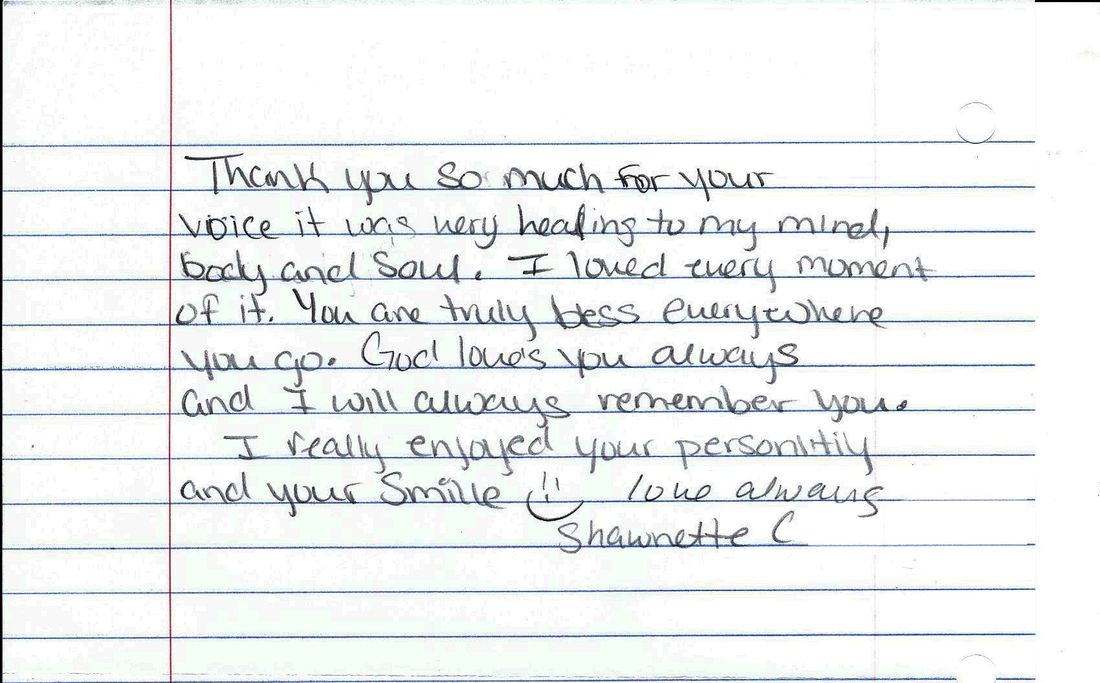 Thank you so much for your
voice it was very healing to my mind,
body and Soul. I loved every moment
of it. You are truly bess everywhere
you go. God loves you always
and I will always remember you.
I really enjoyed your personlitiy
and your Smiile love always
Shawnette C